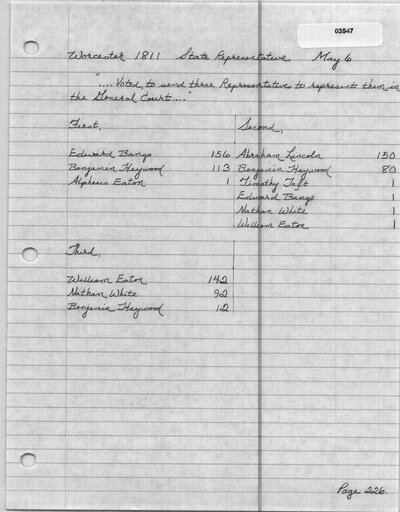 03547
Worcester 1811 State Representative May 6
"....Voted, to send three Representatives to represent them in
the General Court...."
First,
Edward Bangs 156
Benjamin Heywood 113
Alpheus Eaton 1
Second,
Abraham Lincoln 150
Benjamin Heywood 80
Timothy Taft 1
Edward Bangs 1
Nathan White 1
William Eaton 1
Third,
William Eaton 142
Nathan White 92
Benjamin Heywood 12
Page 226.